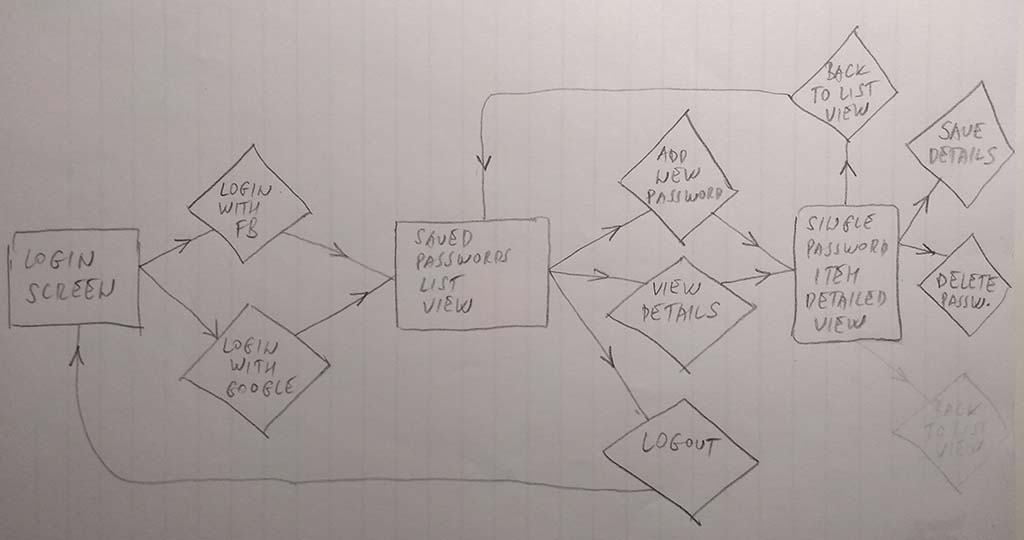 LOGIN
SCREEN
LOGIN
WITH
FB
LOGIN
WITH
GOOGLE
SAVED
PASSWORDS
LIST
VIEW
ADD
NEW
PASSWORD
VIEW
DETAILS
LOGOUT
BACK
TO LIST
VIEW
SINGLE
PASSWORD
ITEM
DETAILED
VIEW
SAVE
DETAILS
DELETE
PASSW.
BACK
TO LIST
VIEW